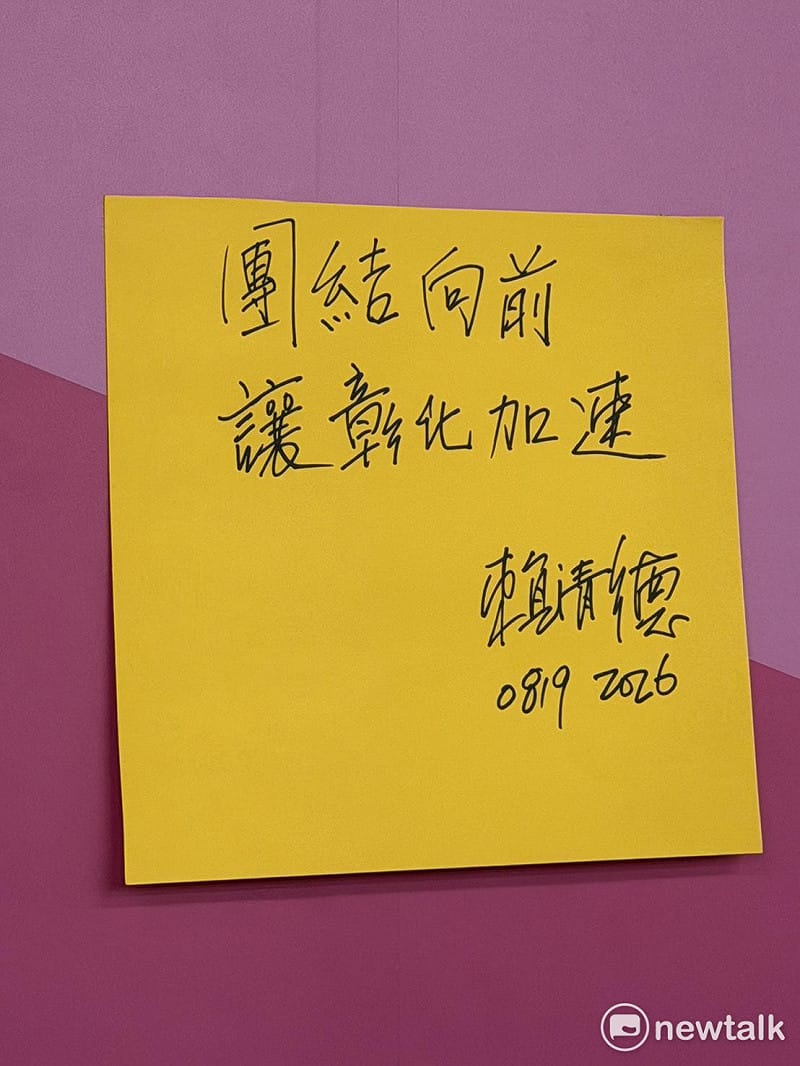 團結向前
讓彰化加速
賴清德
0819 2026
newtalk